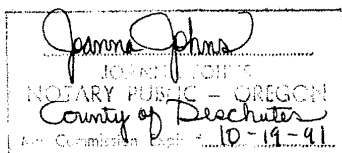 Joanna Johns
JOANNA JOHNS
NOTARY PUBLIC – OREGON
County of Deschutes
My Commission Expires 10-19-91